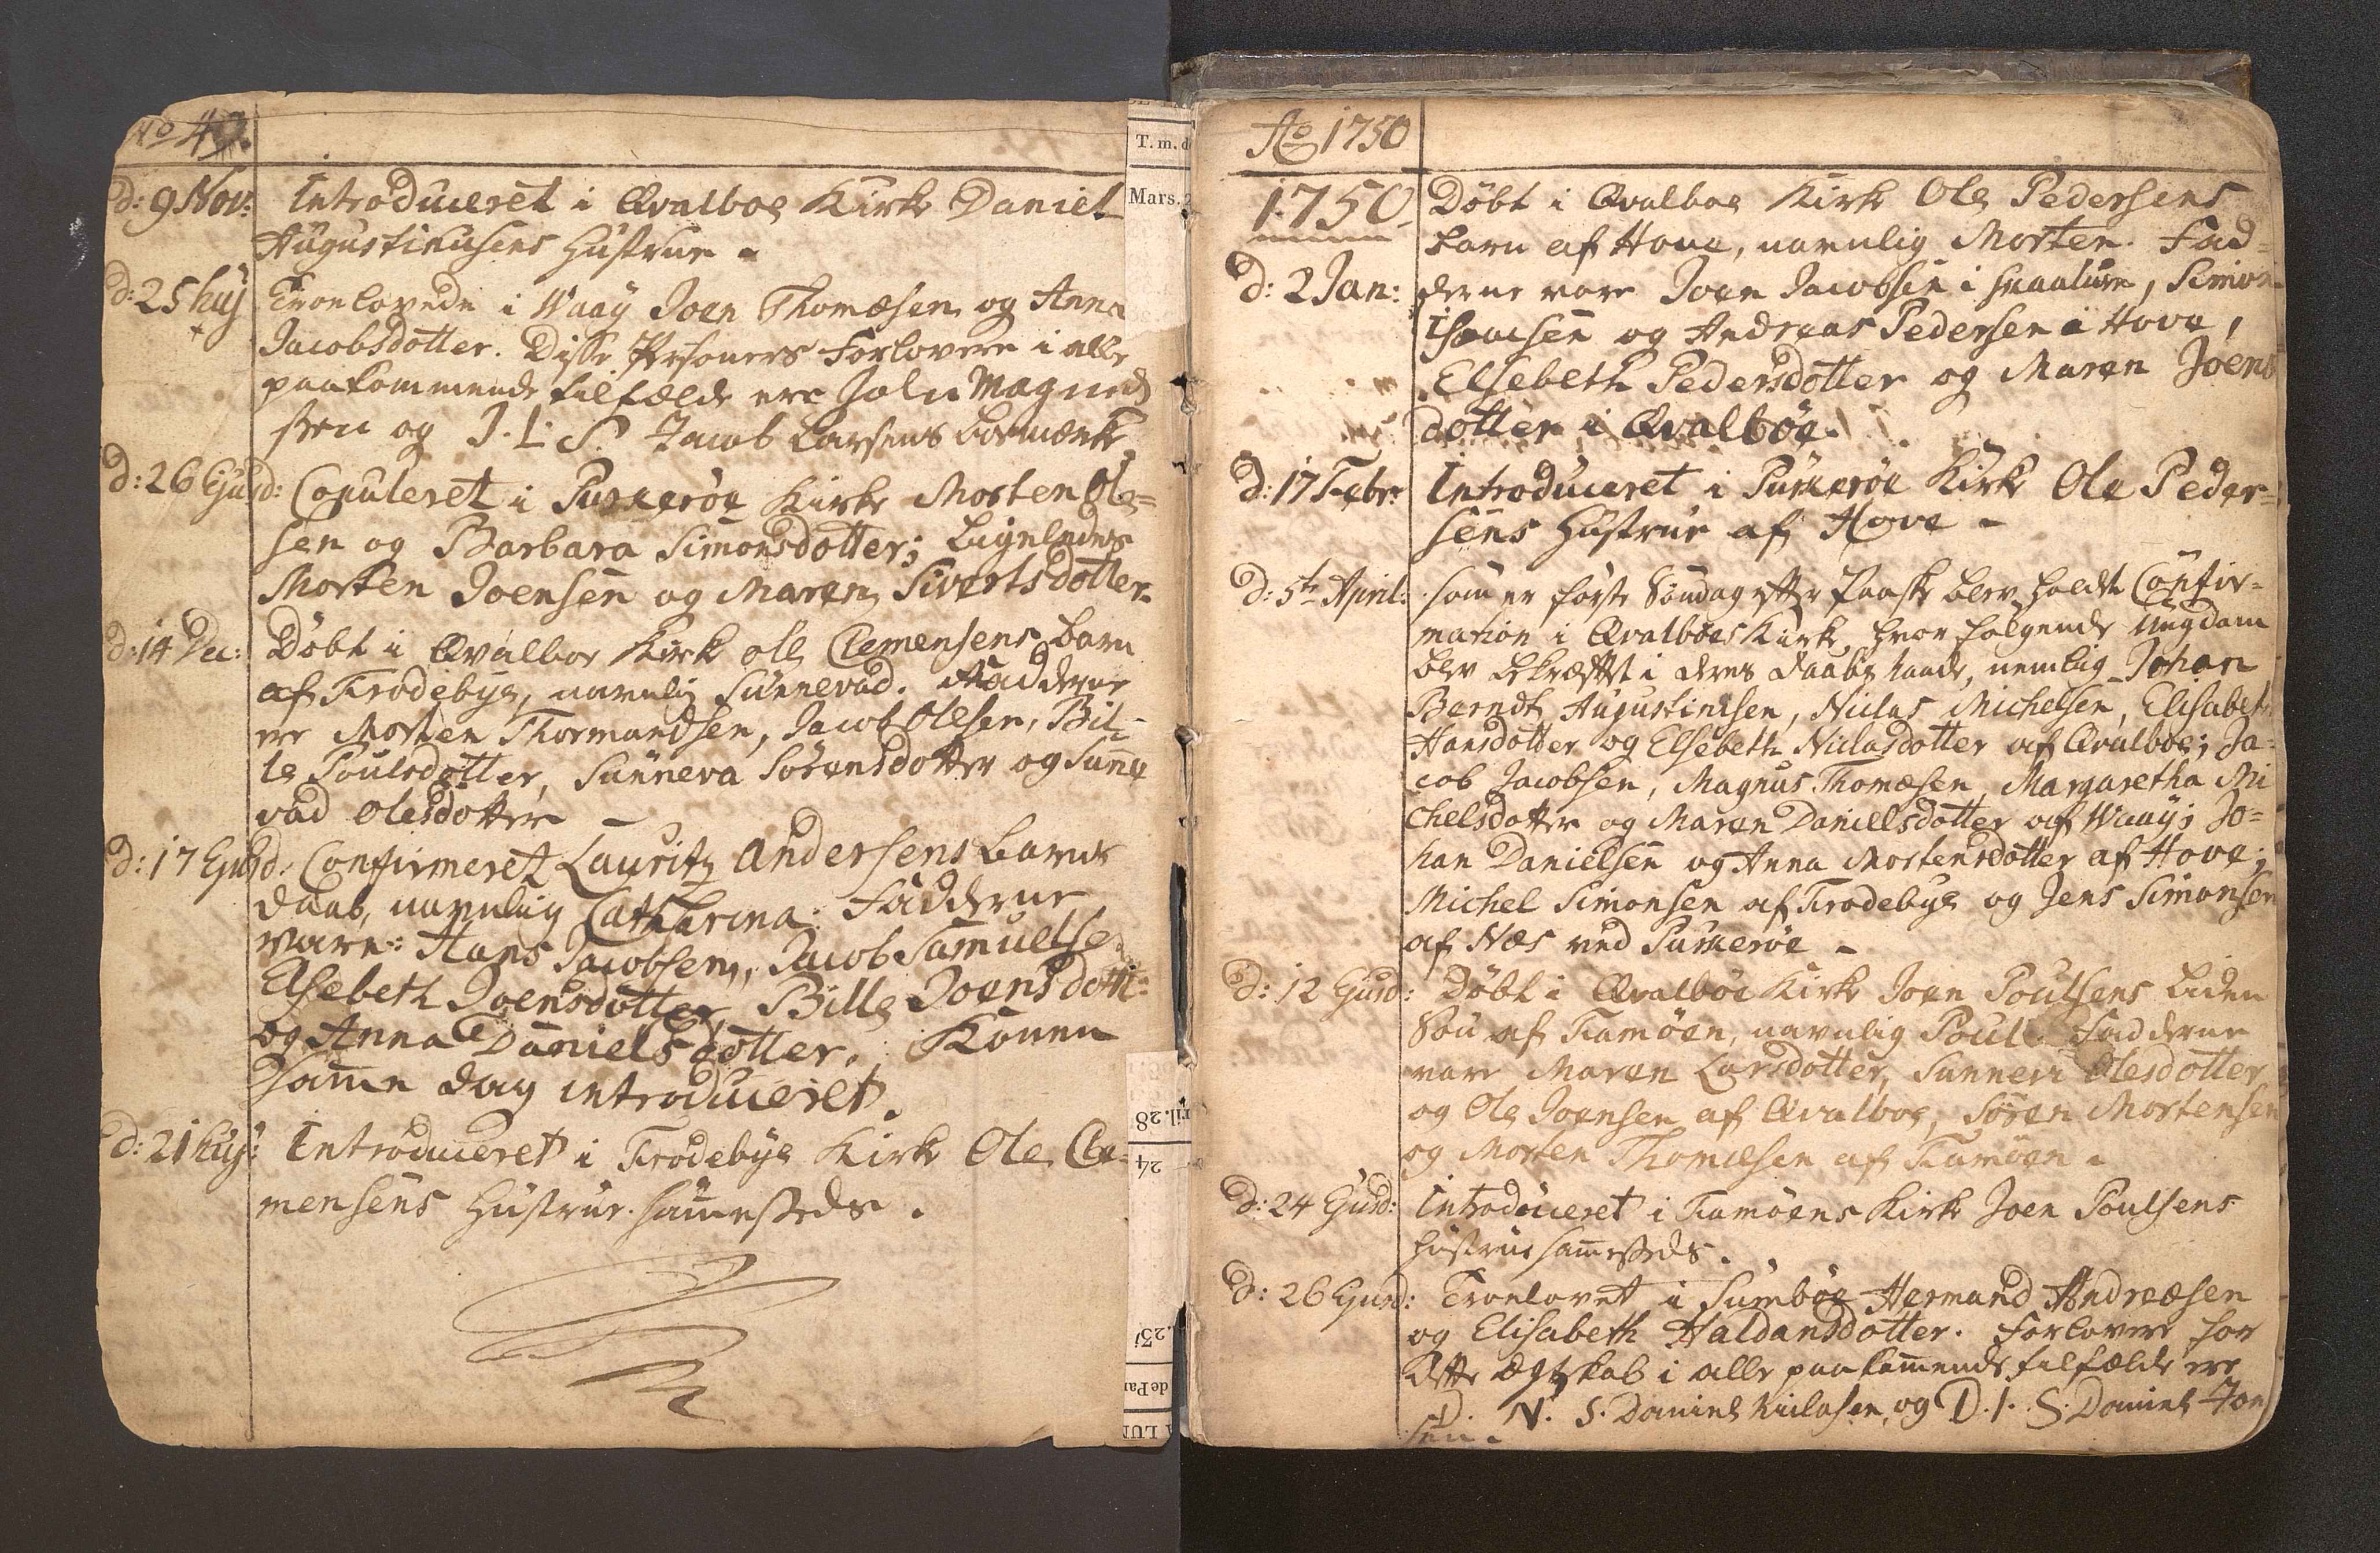 Ao 49.
d: 9 Nov: Introduceret i Qvalboe Kirke Daniel
Augustinusens Hustrue.
d: 25 huj Troelovede i Waay Joen Thomæsen og Anna
Jacobsdotter. Disse Personers Forlovere i alle
paakommende tilfælde ere John Magnus
sen og J. L. S. Jacob Larsens boemærke
d: 26 Ejusd: Copuleret i Purkerøe Kirke Morten Ole=
sen og Barbara Simonsdotter; ligeledes
Morten Joensen og Maren Sivertsdotter.
d: 14 Dec: Døbt i Qvalboe Kirke Ole Clemensens barn
af Frodebye, navnlig Sunnevad. Fadderne
ere Morten Thormandsen, Jacob Olesen, Bil-
le Poulsdotter, Sunneva Sörensdotter og Sunne
vad Olesdotter
d: 17 Ejusd: Confirmeret Lauritz Andersens barns
daab, navnlig Catharina. Fadderne
vare: Hans Jacobsen, Jacob Samuelse
Elsebeth Joensdotter, Bille Joensdott:
og Anna Danielsdotter. Konen
samme dag introduceret.
d: 21 huj: Introduceret i Frodebye Kirke Ole Cle=
mensens Hustrue sammesteds.
T. m. d
Mars. 2
ril. 28
24
.23
de Par
LUN
Ao 1750
1750 Døbt i Qvalboe Kirke Ole Pedersens
barn af Hove, navnlig Morten. Fad=
d: 2 Jan: derne vare Joen Jacobsen i , Simon
Isacsen og Andreas Pedersen i Hove,
Elsebeth Pedersdotter og Maren Joens
dotter i Qvalböe.
d: 17 Febr: Introduceret i Purkerøe Kirke Ole Peder=
sens Hustrue af Hove -
d: 5te April: som er første Söndag efter Paaske blev holdt Confir=
mation i Qvalböes Kirke, hvor følgende Ungdom
blev bekræftet i deres daabs naade, nemlig Johan
Berndt Augustinsen, Niclas Michelsen, Elisabeth
Hansdotter og Elsebeth Niclasdotter af Qvalboe; Ja=
cob Jacobsen, Magnus Thomæsen, Margaretha Mi
chelsdotter og Maren Danielsdotter af Waay; Jo=
han Danielsen og Anna Mortensdotter af Hove;
Michel Simonsen af Frodebye og Jens Simonsen
af Næs ved Purkerøe -
d: 12 Ejusd: Døbt i Qvalböe Kirke Joen Poulsens liden
Sön af Famöen, navnlig Poul. Fadderne
vare Maren Larsdotter, Sunneva Olesdotter
og Ole Joensen af Qvalboe, Sören Mortensen
og Morten Thomæsen af Famöen.
d: 24 Ejusd: Introduceret i Famöens Kirke Joen Poulsens
Hustrue sammesteds.
d: 26 Ejusd: Troelovet i Sumböe Hermund Andreæsen
og Elisabeth Haldansdotter. Forlovere for
dette Ægteskab i alle paakommende tilfælde ere
D. N. S. Daniel Niclasen, og D. I. S. Daniel Joen
sen.